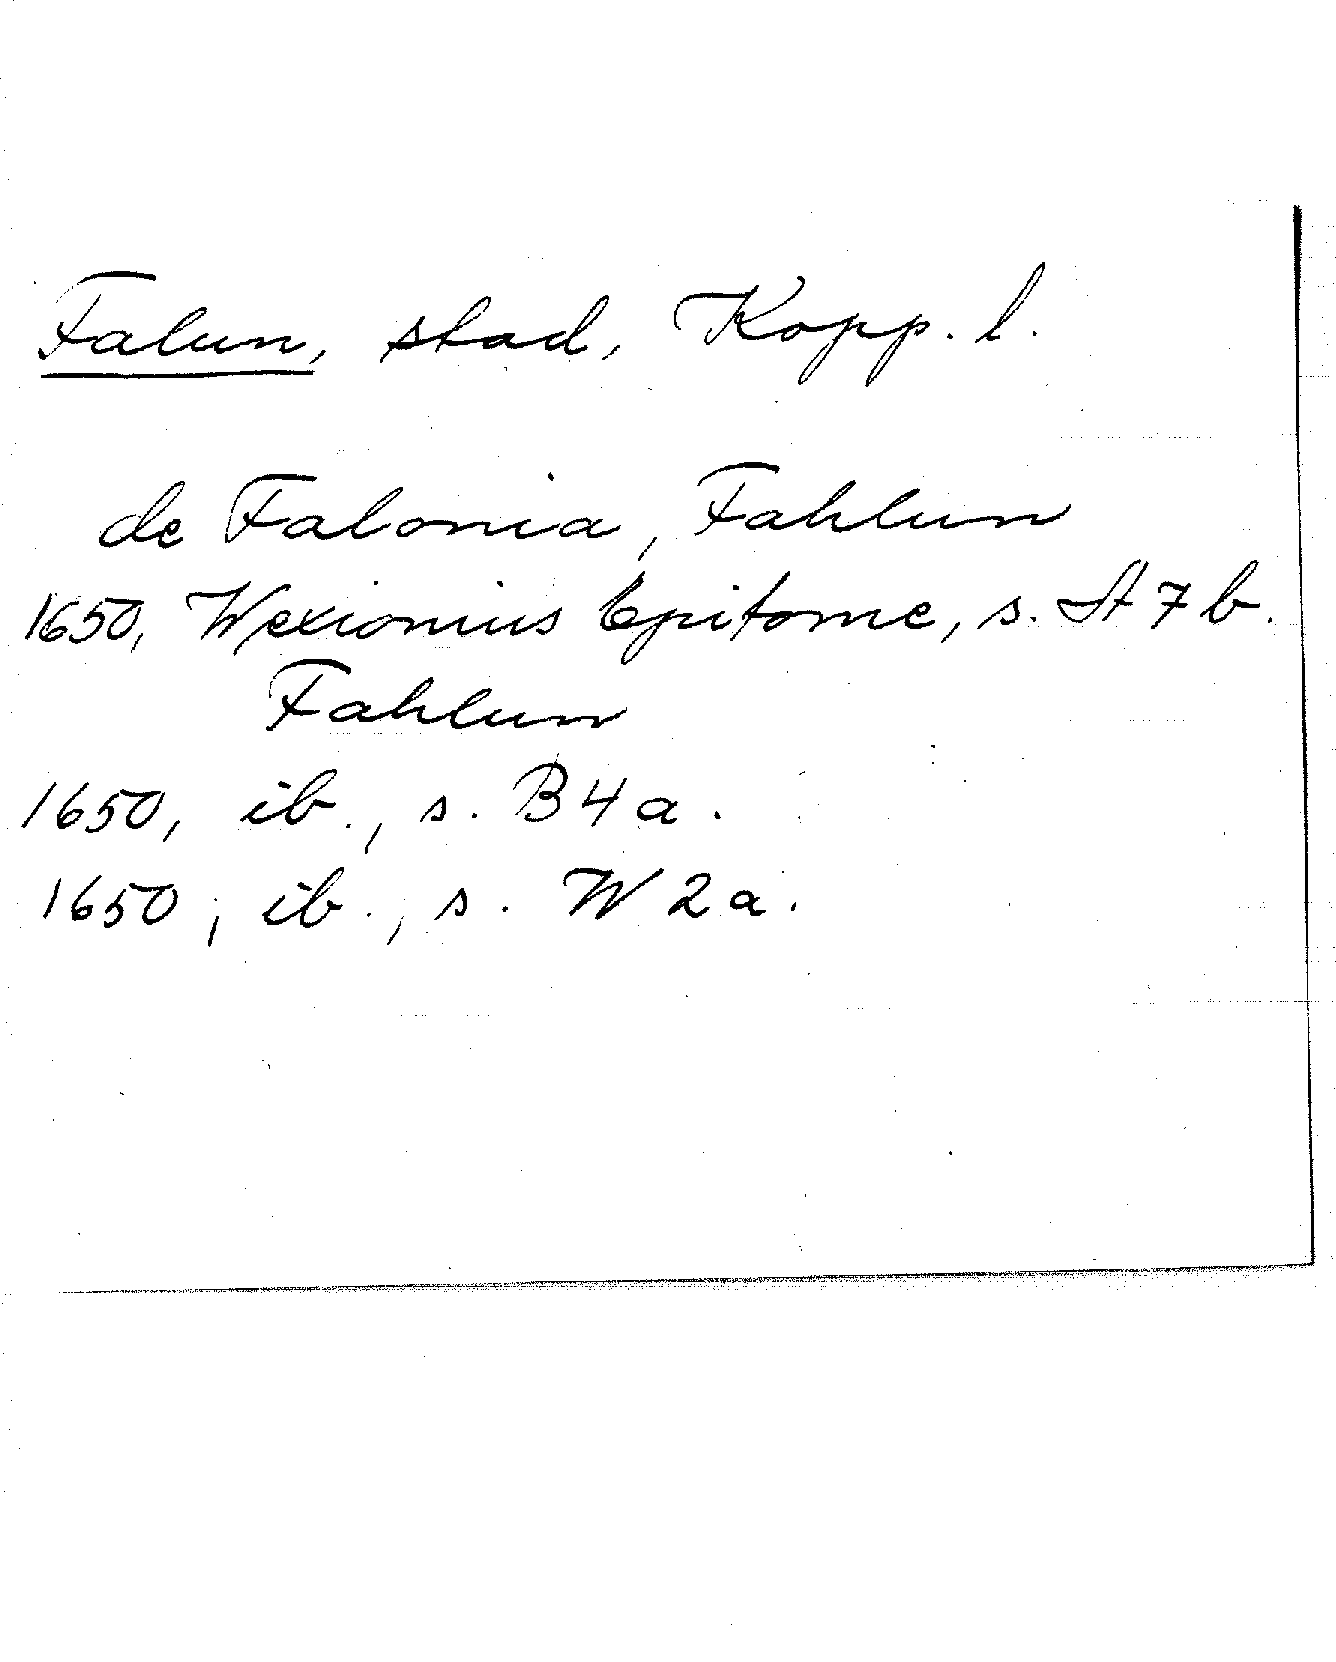 Falun, stad, Kopp. l.
de Falonia, Fahlun
1650, Wexionius Epitome, s. A 7 b.
Fahlun
1650, ib., s. B 4 a.
1650, ib., s. W 2 a.